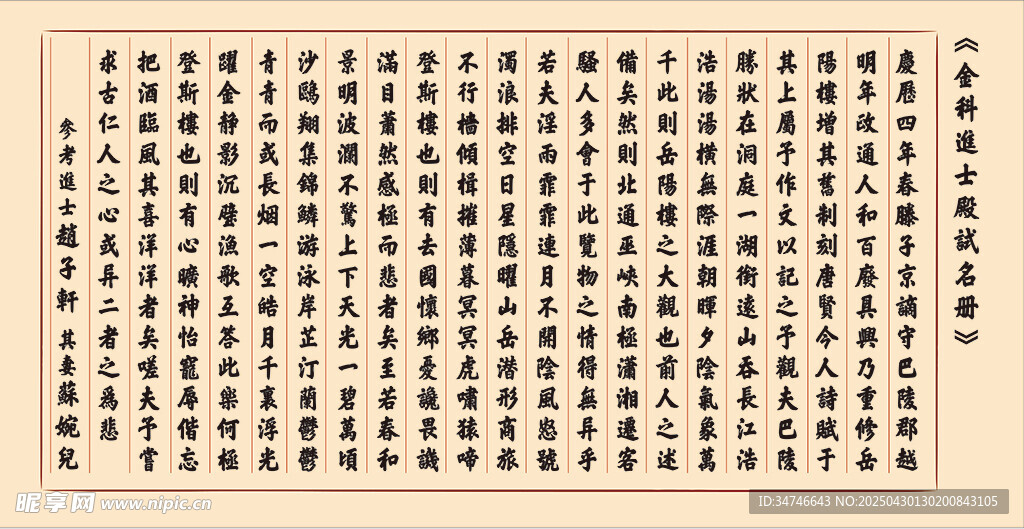 《金科進士殿試名册》
慶曆四年春滕子京謫守巴陵郡越
明年政通人和百廢具興乃重修岳
陽樓增其舊制刻唐賢今人詩賦于
其上屬予作文以記之予觀夫巴陵
勝狀在洞庭一湖銜遠山吞長江浩
浩湯湯橫無際涯朝暉夕陰氣象萬
千此則岳陽樓之大觀也前人之述
備矣然則北通巫峽南極瀟湘遷客
騷人多會于此覽物之情得無異乎
若夫淫雨霏霏連月不開陰風怒號
濁浪排空日星隱曜山岳潛形商旅
不行檣傾楫摧薄暮冥冥虎嘯猿啼
登斯樓也則有去國懷鄉憂讒畏譏
滿目蕭然感極而悲者矣至若春和
景明波瀾不驚上下天光一碧萬頃
沙鷗翔集錦鱗游泳岸芷汀蘭鬱鬱
青青而或長烟一空皓月千裏浮光
躍金静影沉璧漁歌互答此樂何極
登斯樓也則有心曠神怡寵辱偕忘
把酒臨風其喜洋洋者矣嗟夫予嘗
求古仁人之心或异二者之爲悲
參考進士趙子軒 其妻蘇婉兒
昵享网 www.nipic.cn
ID:34746643 NO:20250430130200843105